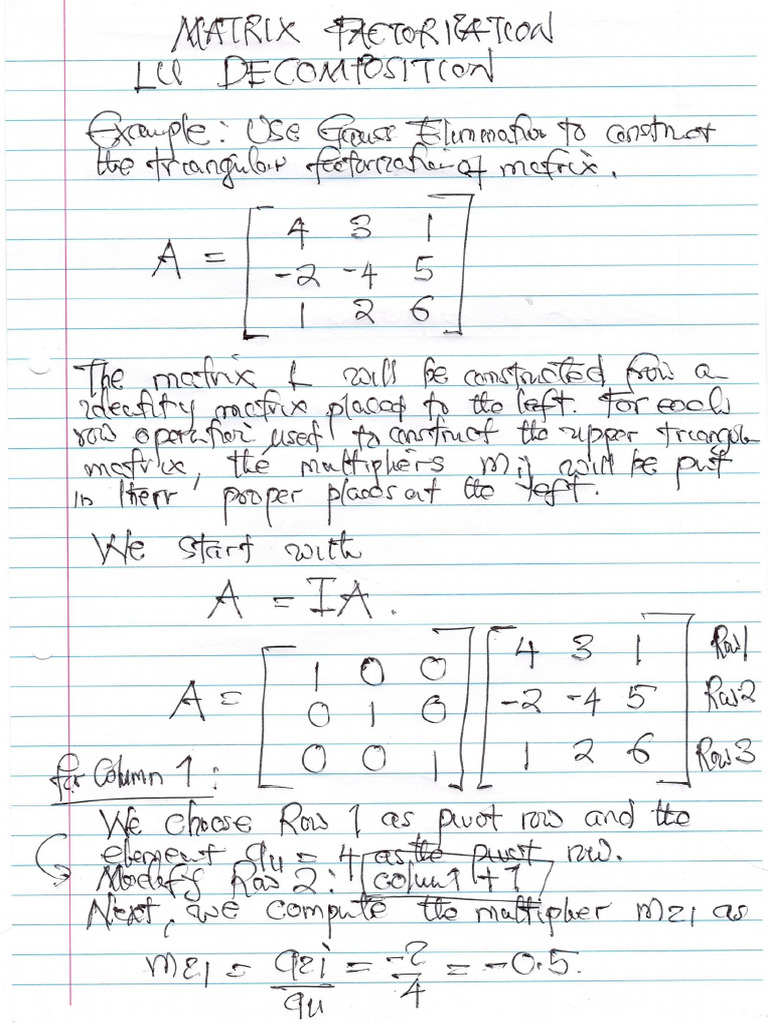 MATRIX FACTORIZATION
LU DECOMPOSITION
Example: Use Gauss Elimination to construct
the triangular factorization of matrix.
A = [ 4 3 1
-2 -4 5
1 2 6 ]
The matrix L will be constructed from a
identity matrix placed to the left. For each
row operation used to construct the upper triangular
matrix, the multipliers mij will be put
in their proper places at the left.
We start with
A = IA.
A = [ 1 0 0 ] [ 4 3 1 ] Row 1
[ 0 1 0 ] [ -2 -4 5 ] Row 2
[ 0 0 1 ] [ 1 2 6 ] Row 3
for Column 1:
We choose Row 1 as pivot row and the
element a11 = 4 as the pivot row.
Modify Row 2: column + 1
Next, we compute the multiplier m21 as
m21 = a21/a11 = -2/4 = -0.5.